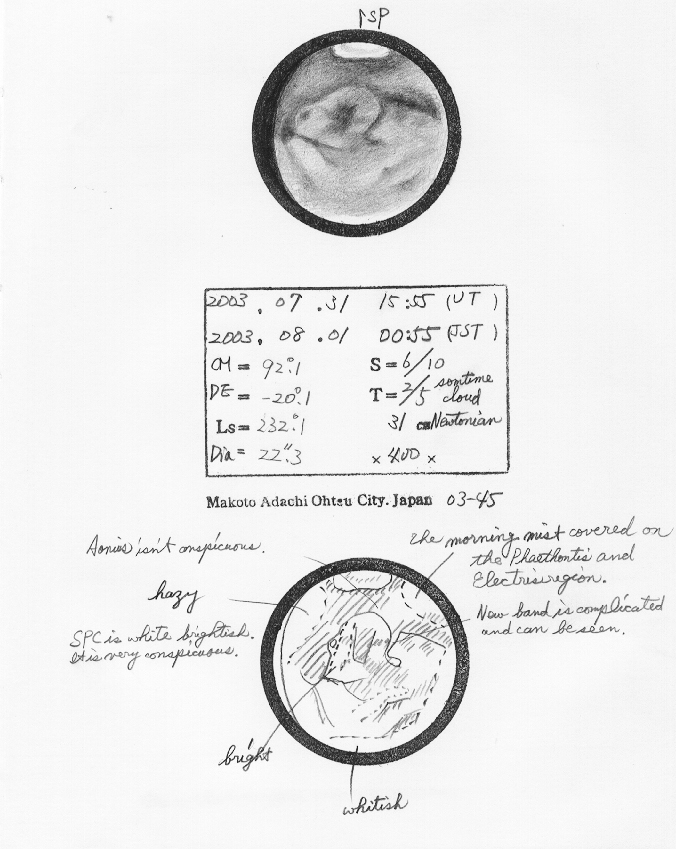 ↑SP
2003 . 07 . 31 15:55 (UT)
2003 . 08 . 01 00:55 (JST)
CM = 92.°1 S = 6/10
DE = -20.°1 T = 2/5 somtime cloud
Ls = 232.°1 31 cm Newtonian
Dia = 22."3 × 400 ×
Makoto Adachi Ohtsu City. Japan 03-45
Aonius isn't conspicuous.
The morning mist covered on
the Phaethontis and
Electris region.
hazy
New band is complicated
and can be seen.
SPC is white brightish.
It is very conspicuous.
bright
whitish